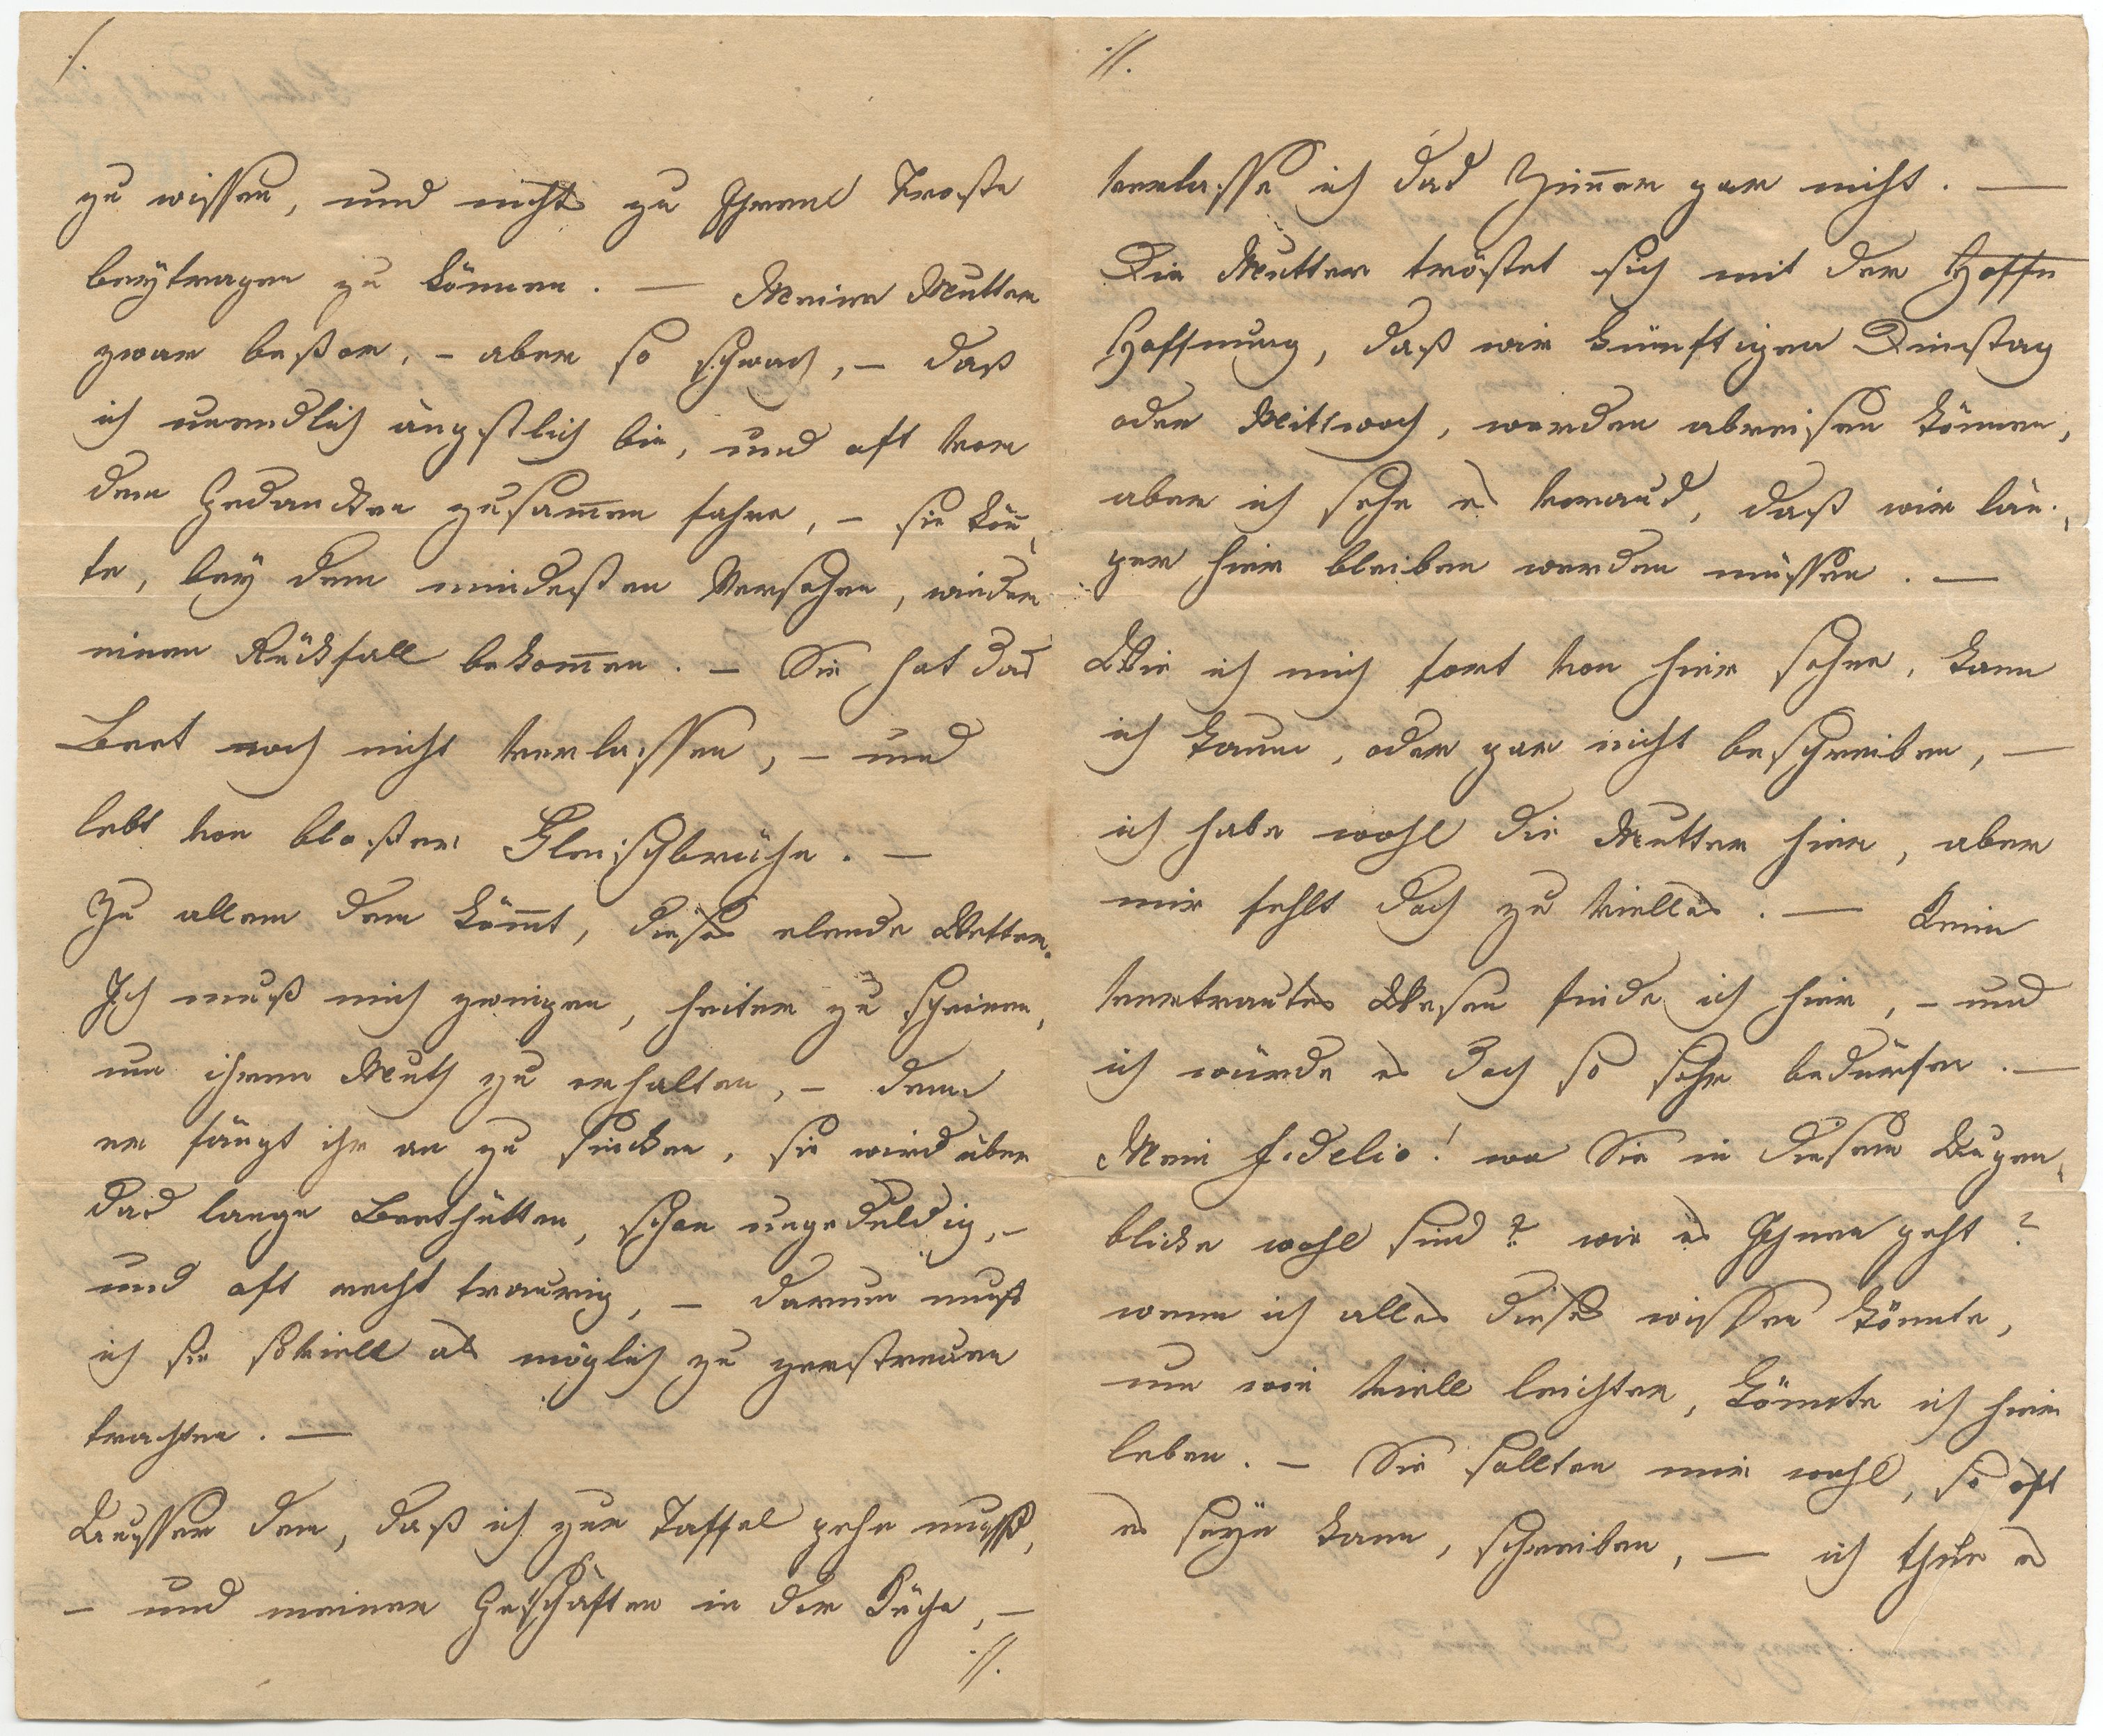 /.
zu wissen, und nichts zu Ihrend Troste
beÿtragen zu können. — Meine Mutter
zwar beßer, – aber so schwach, – daß
ich unendlich ängstlich bin, und oft von
dem Gedancken zusam̄en fahre, – sie kön̄
te, beÿ dem mindesten Versehen, wieder
einen Rückfall bekom̄en. – Sie hat das
Bett noch nicht verlassen, – und
lebt von bloßer Fleischbrühe. —
Zu allem dem köm̄t, dieses elende Wetter.
Ich muß mich zwingen, heiter zu scheinen,
um ihren Muth zu erhalten, – denn
er fängt ihr an zu sincken, sie wird über
das lange Betthütten, schon ungeduldig, –
und oft recht traurig, – darum muß
ich sie soviell als möglich zu zerstreuen
trachten. —
Ausser dem, daß ich zur Taffel gehe muß,
– und meinen Geschäften in der Küche, –
//.
//.
verlasse ich das Zim̄er gar nicht. —
Die Mutter tröstet sich mit der Hoffn
Hoffnung, daß wir künftigen Dinstag
oder Mittwoch, werden abreisen können,
aber ich sehe es voraus, daß wir län-
ger hier bleiben werden müssen. —
Wie ich mich fort von hier sehne, kann
ich kaum, oder gar nicht beschreiben, —
ich habe wohl die Mutter hier, aber
mir fehlt doch zu vielles. — Kein
vertrautes Wesen finde ich hier, – und
ich würde es doch so sehr bedürfen. —
Mein Fidelio! wo Sie in diesem Augen-
blicke wohl sind? wie es Ihnen geht?
wenn ich alles dieses wissen könnte,
um wie viell leichter, könnte ich hier
leben. – Sie sollten mir wohl, so oft
es seÿn kann, schreiben, — ich thue es